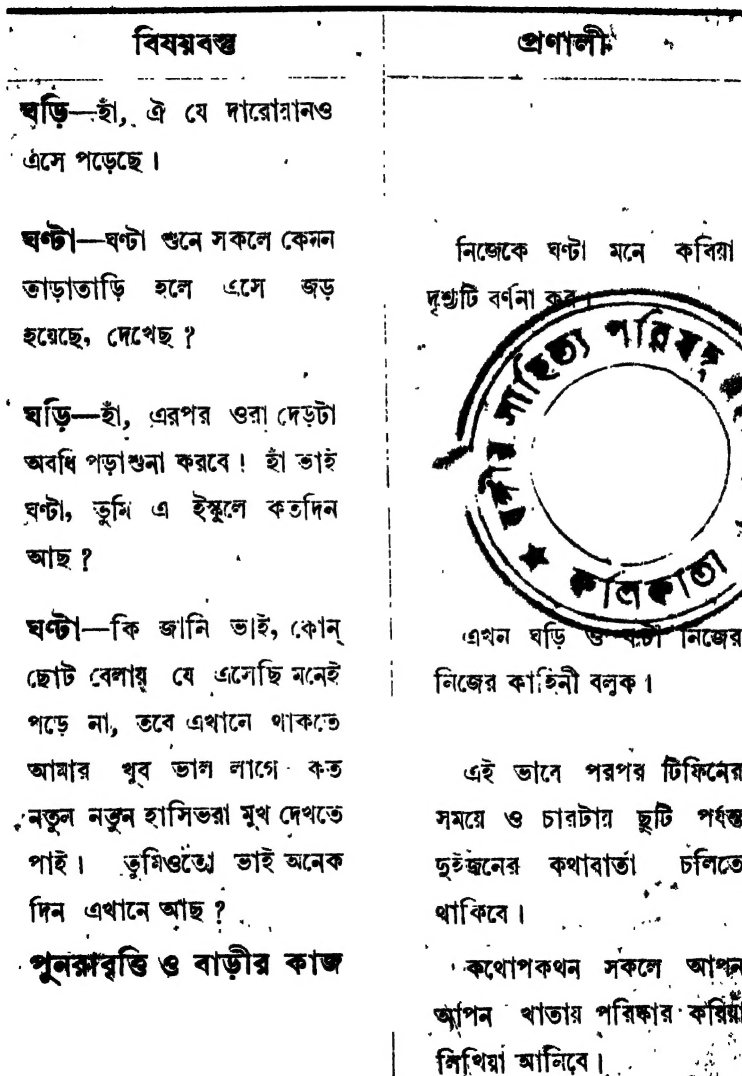 বিষয়বস্তু
ঘড়ি—হাঁ, ঐ যে দারোয়ানও
এসে পড়েছে।
ঘণ্টা—ঘণ্টা শুনে সকলে কেমন
তাড়াতাড়ি হলে এসে জড়
হয়েছে, দেখেছ?
ঘড়ি—হাঁ, এরপর ওরা দেড়টা
অবধি পড়াশুনা করবে! হাঁ ভাই
ঘণ্টা, তুমি এ ইস্কুলে কতদিন
আছ?
ঘণ্টা—কি জানি ভাই, কোন্
ছোট বেলায় যে এসেছি মনেই
পড়ে না, তবে এখানে থাকতে
আমার খুব ভাল লাগে কত
নতুন নতুন হাসিভরা মুখ দেখতে
পাই। তুমিওতো ভাই অনেক
দিন এখানে আছ?
পুনরাবৃত্তি ও বাড়ীর কাজ
প্রণালী
নিজেকে ঘণ্টা মনে করিয়া
দৃশ্যটি বর্ণনা কর।
বঙ্গীয় সাহিত্য পরিষদ
কলিকাতা
এখন ঘড়ি ও ঘণ্টা নিজের
নিজের কাহিনী বলুক।
এই ভাবে পরপর টিফিনের
সময়ে ও চারটায় ছুটি পর্যন্ত
দুইজনের কথাবার্তা চলিতে
থাকিবে।
কথোপকথন সকলে আপন
আপন খাতায় পরিষ্কার করিয়া
লিখিয়া আনিবে।